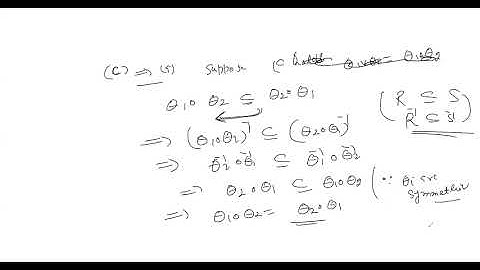 (c) ⟹ (5) Suppose (c
θ₁∘θ₂ ⊆ θ₂∘θ₁
⟹ (θ₁∘θ₂)⁻¹ ⊆ (θ₂∘θ₁)⁻¹ (R ⊆ S
R⁻¹ ⊆ S⁻¹)
⟹ θ₂⁻¹∘θ₁⁻¹ ⊆ θ₁⁻¹∘θ₂⁻¹
⟹ θ₂∘θ₁ ⊆ θ₁∘θ₂ (∵ θi's are
symmetric
⟹ θ₁∘θ₂ = θ₂∘θ₁